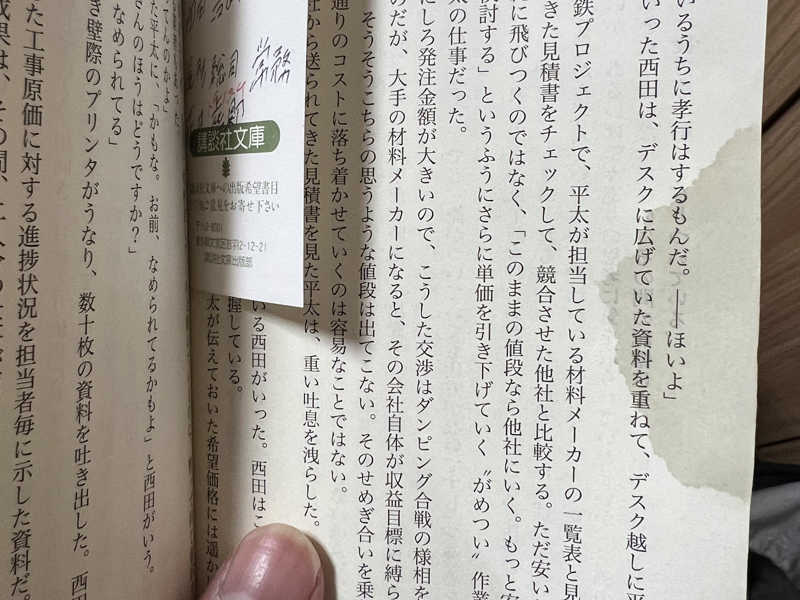 いるうちに孝行はするもんだ。――ほいよ」
いった西田は、デスクに広げていた資料を重ねて、デスク越しに平
鉄プロジェクトで、平太が担当している材料メーカーの一覧表と見
きた見積書をチェックして、競合させた他社と比較する。ただ安い
に飛びつくのではなく、「このままの値段なら他社にいく。もっと安
検討する」というふうにさらに単価を引き下げていく〝がめつい〟作業
太の仕事だった。
にしろ発注金額が大きいので、こうした交渉はダンピング合戦の様相を
のだが、大手の材料メーカーになると、その会社自体が収益目標に縛ら
そうそうこちらの思うような値段は出てこない。そのせめぎ合いを乗
通りのコストに落ち着かせていくのは容易なことではない。
社から送られてきた見積書を見た平太は、重い吐息を洩らした。
いる西田がいった。西田はこ
握している。
太が伝えておいた希望価格には遥か
講談社文庫
文庫への出版希望書目
意見をお寄せ下さい
2-12-21
講談社文庫出版部
てんのかよ」
た平太に、「かもな。お前、なめられてるかもよ」と西田がいう。
さんのほうはどうですか?」
なめられてる」
き壁際のプリンタがうなり、数十枚の資料を吐き出した。西
た工事原価に対する進捗状況を担当者毎に示した資料だ。
成果は、その間、